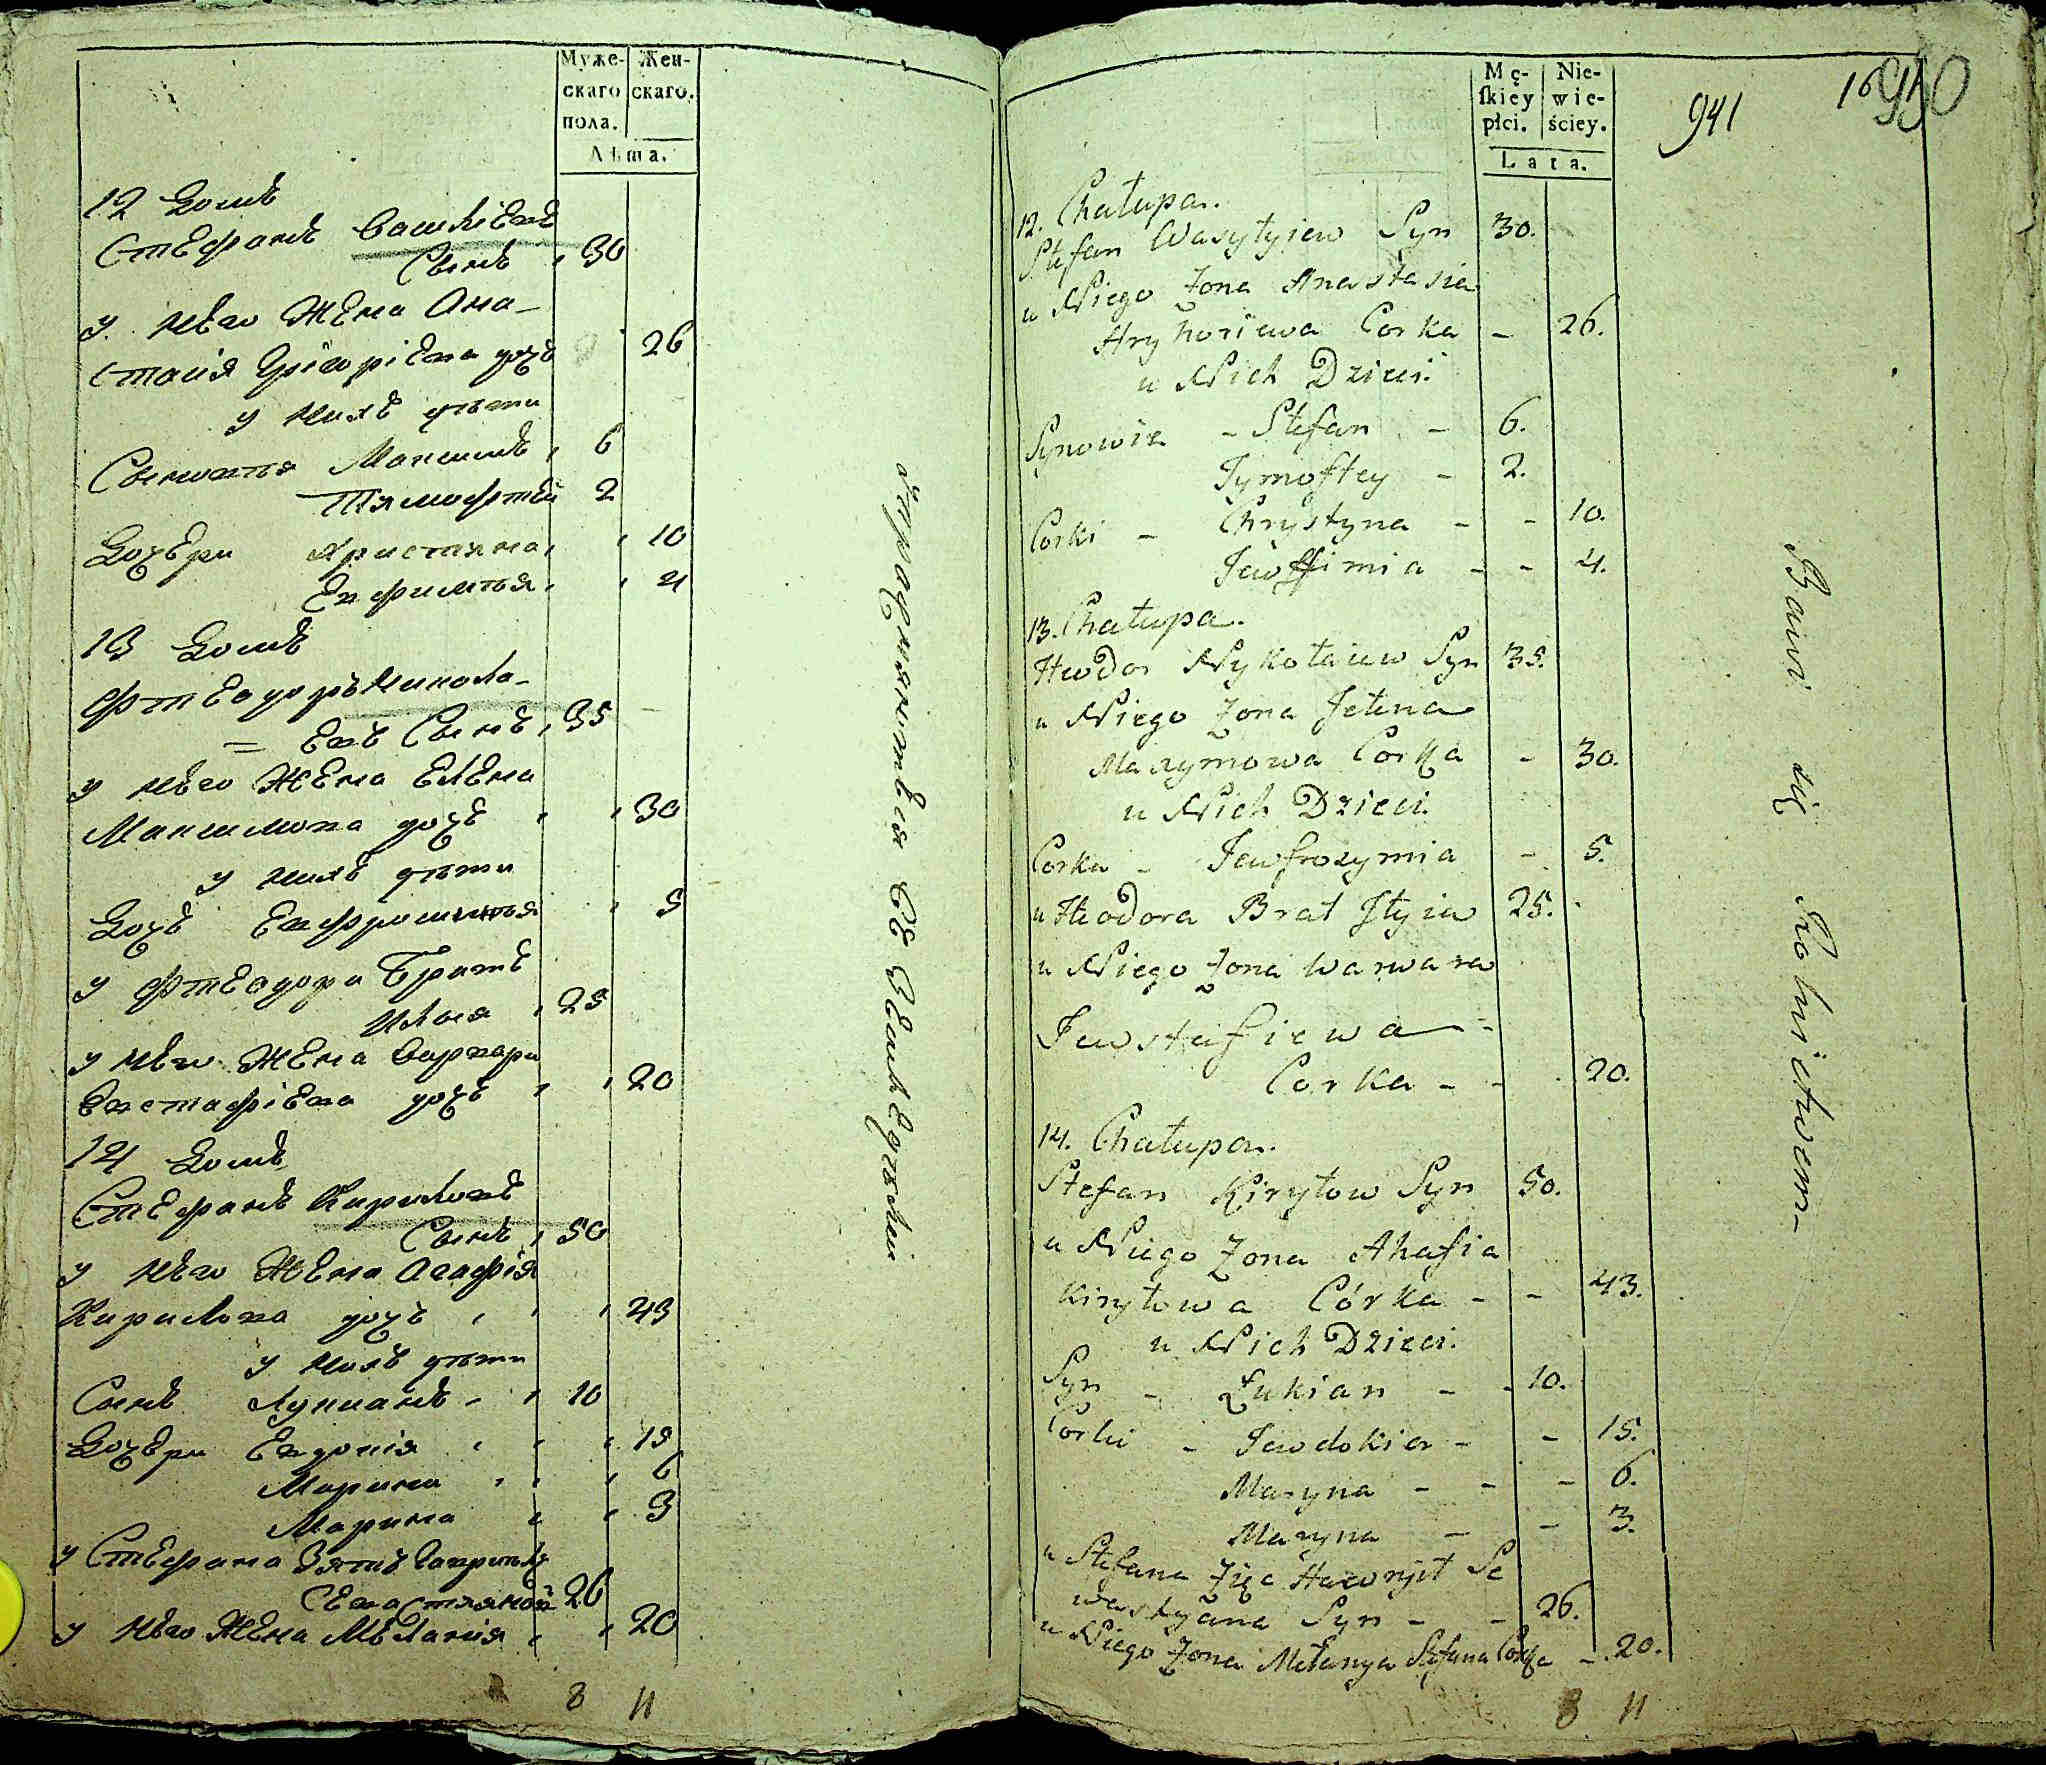 Муже- Жен-
скаго скаго.
пола.
Лѣта.
12 Домъ
Стефанъ Василіевъ
Сынъ 30
у него Жена Ана-
стасія Григоріева дочь 26
у нихъ дѣти
Сыновья Максимъ 6
Тимофтей 2
Дочери Христина 10
Евфимья 4
13 Домъ
Фтеодоръ Никола-
= евъ Сынъ 35
у него Жена Елена
Максимова дочь 30
у нихъ дѣти
Дочь 5
у Фтеодора Братъ
Илья 25
у него Жена Варвара
Евстафіева дочь 20
14 Домъ
Стефанъ Кириловъ
Сынъ 50
у него Жена Агафія
Кирилова дочь 43
у нихъ дѣти
Сынъ Лукианъ 10
Дочери Евдокія 15
Марина 6
Марина 3
у Стефана Зять
26
у него Жена Меланія 20
8 11
Mę- Nie-
ſkiey wie-
płci. ściey.
Lata.
941
12. Chałupa.
Stefan Wasyłyiew Syn 30.
u Niego Żona Anastasia
Hryhoriewa Corka - 26.
u Nich Dzieci
Synowie - Stefan - 6.
Tymoftey - 2.
Corki - Chrystyna - - 10.
Jewffimia - - 4.
13. Chałupa.
Fteodor Nykołaiew Syn 35.
u Niego Żona Jełena
Maxymowa Corka - 30.
u Nich Dzieci.
Corka - Jewfrozymia - 5.
u Fteodora Brat Iłyia 25.
u Niego Żona Warwara
Jewstafiewa -
Corka - - 20.
14. Chałupa.
Stefan Kiryłow Syn 50.
u Niego Żona Ahafia
Kiryłowa Córka - - 43.
u Nich Dzieci.
Syn - Łukian - - 10.
Corki - Jewdokia - - 15.
Maryna - - - 6.
Maryna - - 3.
u Stefana Zięć Hawryił Se
wastyana Syn - - 26.
u Niego Żona Mełanya Stefana Corka - 20.
8 11
Bawi się Rolnictwem -